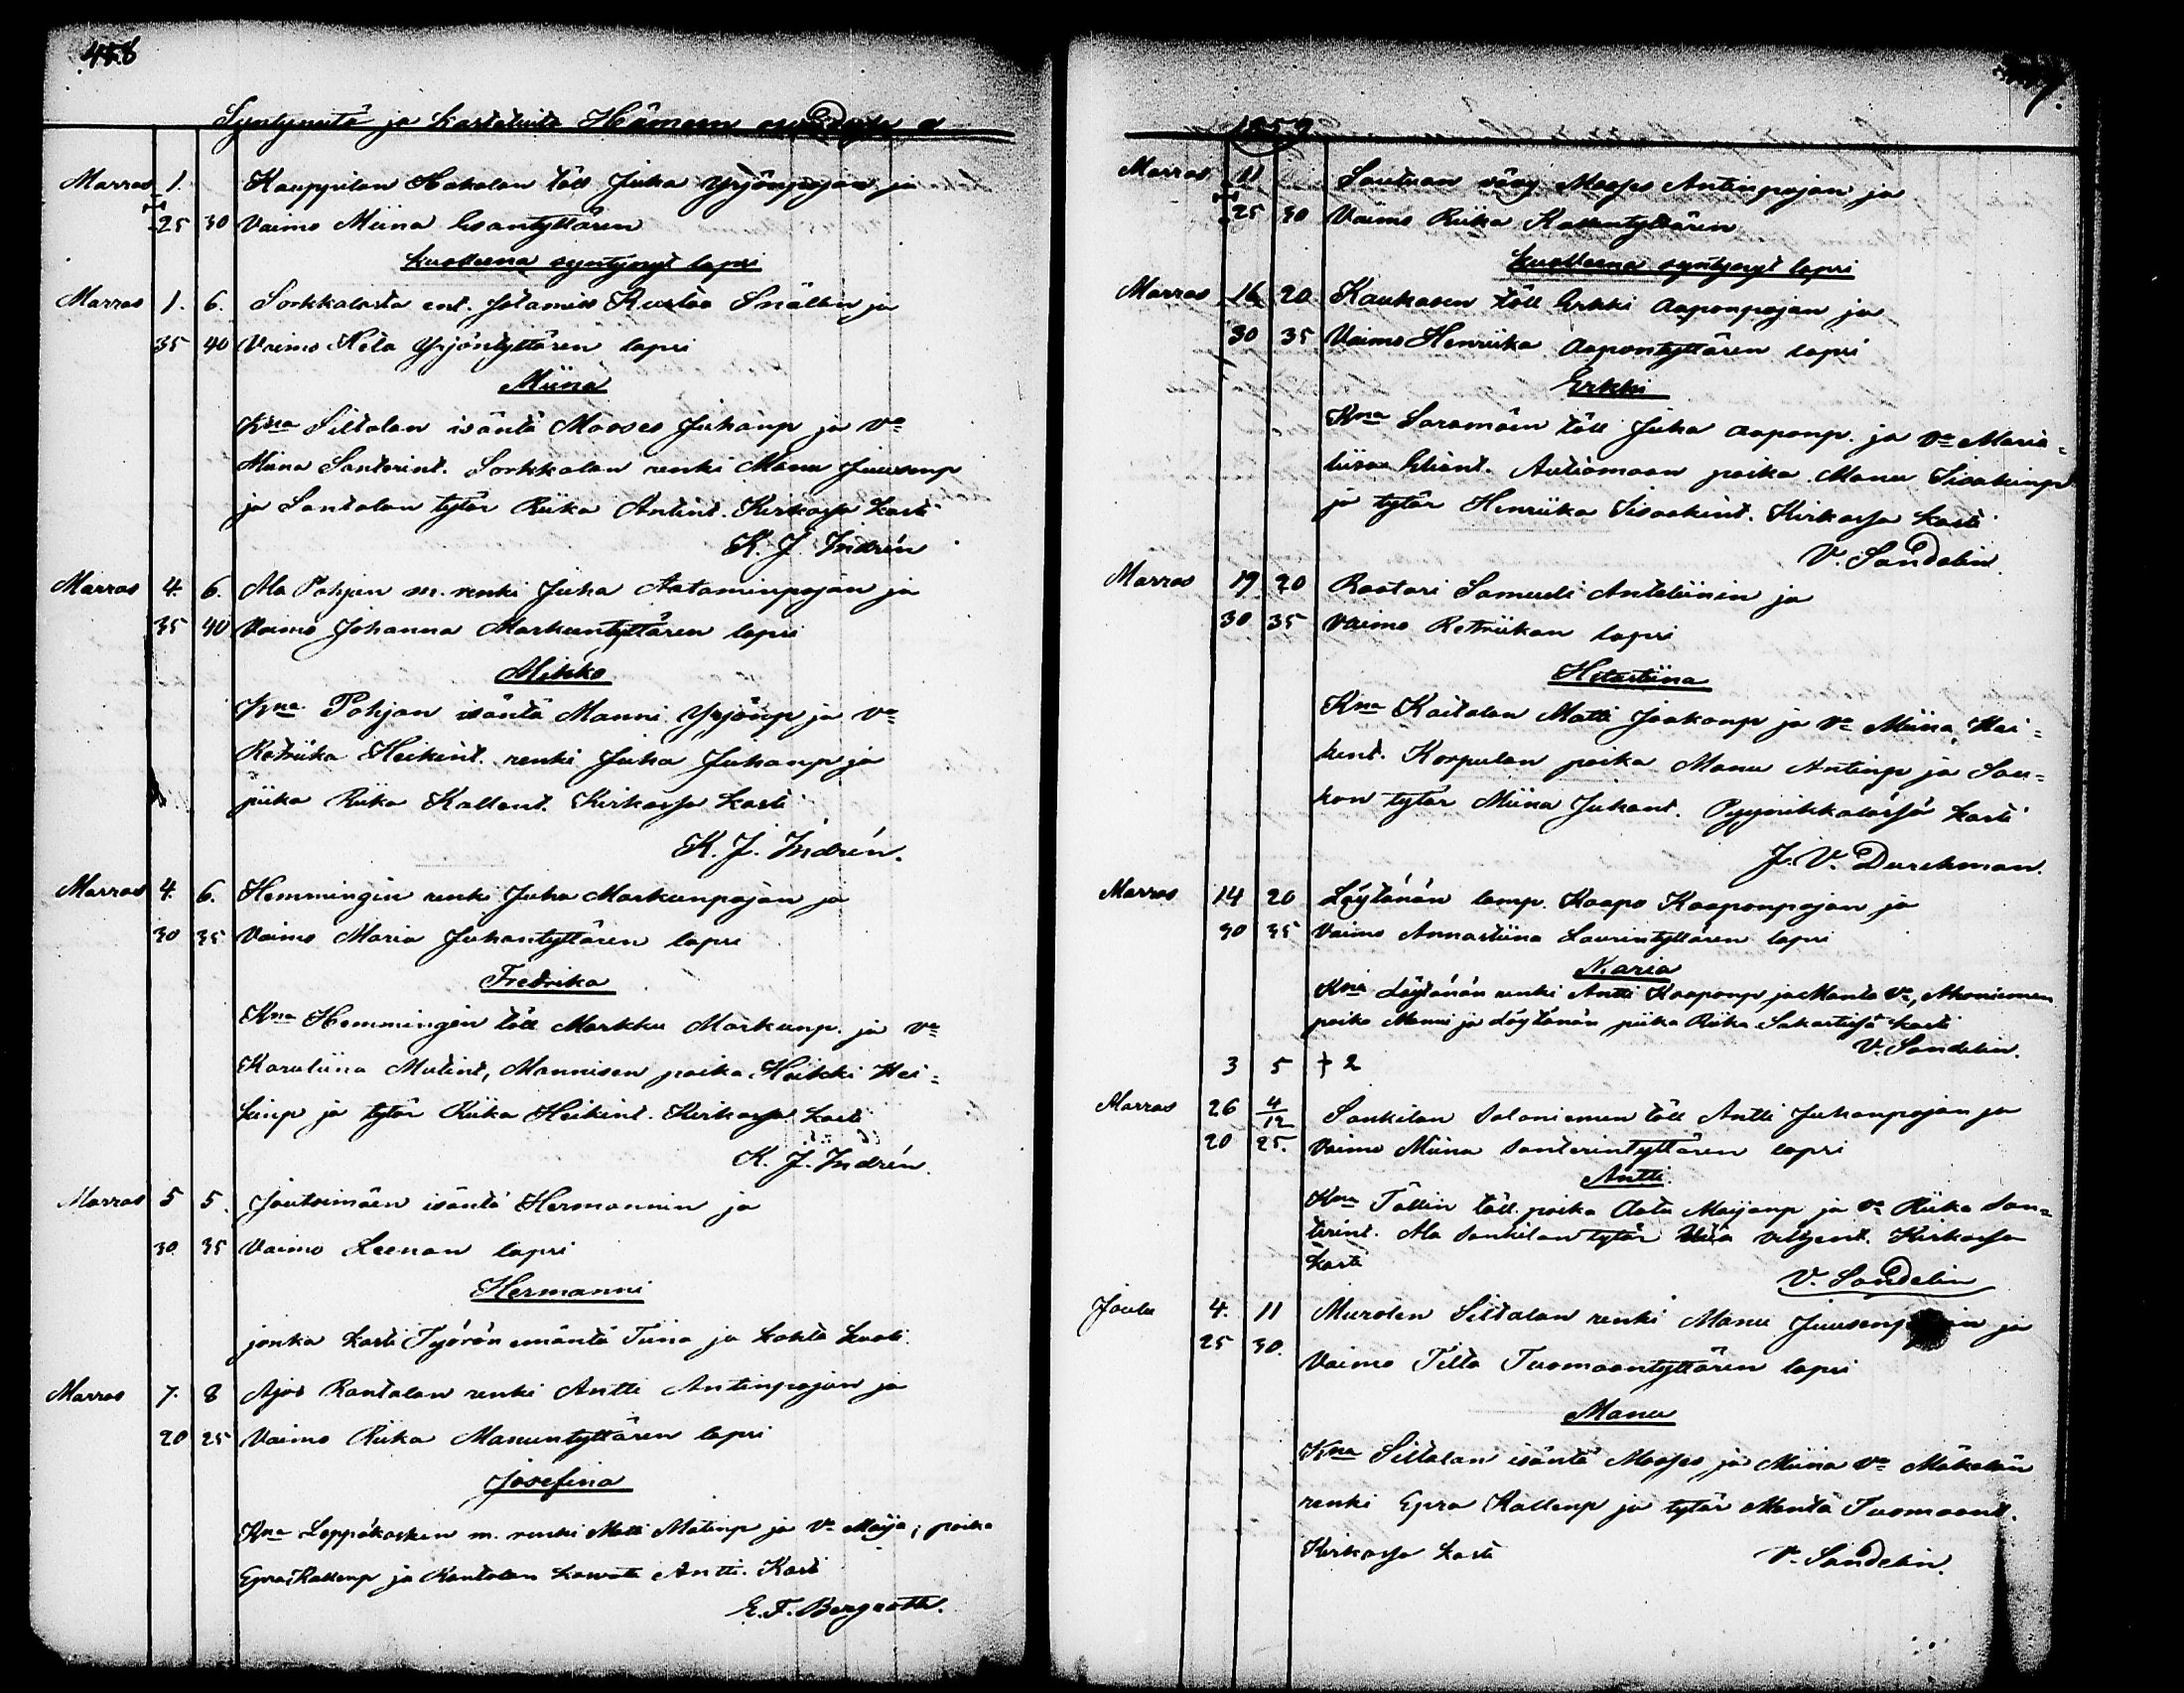 458
Syntyneitä ja kastetuita Hämeen
Marras 1. Kauppilan Hakalan töll Juha Yrjönpojan ja
25 30 Vaimo Miina Esantyttären
kuolleena syntynyt lapsi
Marras 1. 6. Sorkkalasta ent. sotamies Kustaa Snällin ja
35 40 Vaimo Heta Yrjöntyttären lapsi
Miina
Kna Siltalan isäntä Mooses Juhanp ja va
Miina Santerint. Sorkkalan renki Manu Juusenp
ja Santalan tytär Riika Antint. Kirkossa kasti
K. J. Indrén
Marras 4. 6. Ala Pohjan m. renki Juha Aataminpojan ja
35 40 Vaimo Johanna Markuntyttären lapsi
Mikko
Kna Pohjan isäntä Manni Yrjönp ja va
Retriika Heikint. renki Juha Juhanp ja
piika Riika Kallent. Kirkossa kasti
K. J. Indrén.
Marras 4. 6. Hemmingin renki Juha Markunpojan ja
30 35 Vaimo Maria Juhantyttären lapsi
Fredrika
Kna Hemmingin töll Markku Markunp. ja va
Karuliina Matint, Mannisen poika Heikki Hei=
kinp ja tytär Riika Heikint. Kirkossa kasti
K. J. Indrén.
Marras 5 5. Joutsimäen isäntä Hermannin ja
30 35 Vaimo Leenan lapsi
Hermanni
jonka kasti Työrön emäntä Tiina ja kohta kuoli.
Marras 7. 8 Ajos Rantalan renki Antti Antinpojan ja
20 25 Vaimo Riika Manuntyttären lapsi
Josefina
Kna Leppäkosken m. renki Matti Matinp ja va Maija; poika
Epra Kallenp ja Rantalan Antti. Kasti
E. F. Bergroth.
1859
Marras 11 Mooses Antinpojan ja
25 30 Vaimo Riika Kallentyttären
kuolleena syntynyt lapsi
Marras 16 20 Kaukasen töll Erkki Aaponpojan ja
30 35 Vaimo Henriika Aapontyttären lapsi
Erkki
Kna Saramäen töll Juha Aaponp. ja va Maria=
liisa Eliant. Autiomaan poika Manu Iisakinp
ja tytär Henriika Iisaakint. Kirkossa kasti
V. Sandelin
Marras 19 20 Raatari Samueli Anteliinin ja
30 35 Vaimo Retriikan lapsi
Hetastiina
Kna Kaitalan Matti Jaakonp ja va Miina Hei=
kint. Korpulan poika Manu Antinp ja Sau=
kon tytär Miina Juhant. Pyynikkalassa kasti
J. V. Durchman.
Marras 14 20 Löytänän lamp. Kaapo Kaaponpojan ja
30 35 Vaimo Annastiina Laurintyttären lapsi
Maria
Kna Löytänän renki Antti Kaaponp ja Manta va, Ahoniemen
poika Manni ja Löytänän piika Riika. Sakastissä kasti
V. Sandelin.
3 5 † 2
Marras 26 4/12 Sankilan Saloniemen töll Antti Juhanpojan ja
20 25. Vaimo Miina Santerintyttären lapsi
Antti.
Kna Töllin töll. poika Aatu Maijanp ja va Riika San=
terint. Ala Sankilan tytär Viljent. Kirkossa
kasti
V. Sandelin
Joulu 4. 11 Murolen Siltalan renki Manu ja
25 30. Vaimo Tilta Tuomaantyttären lapsi
Manu
Kna Siltalan isäntä Mooses ja Miina va Mäkelän
renki Epra Kallenp ja tytär Manta Tuomaant.
Kirkossa kasti V. Sandelin.